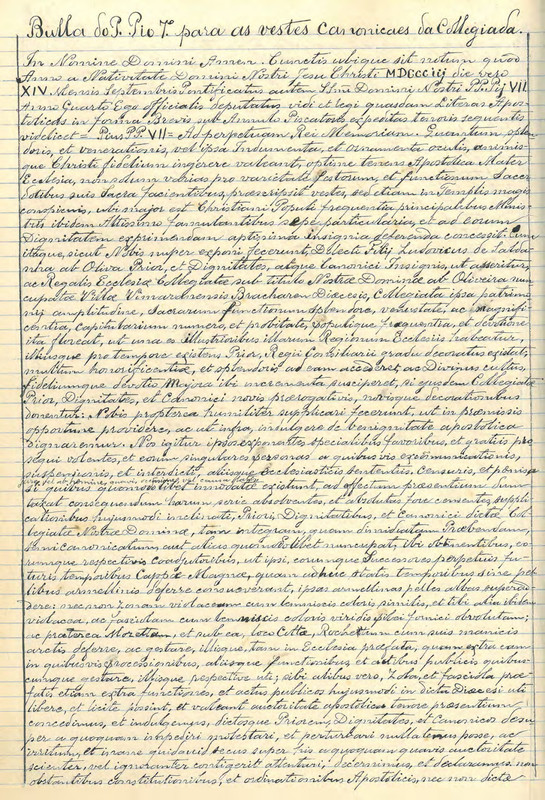 Bulla do P. Pio 7º para as vestes canonicaes da Collegiada.
In Nomine Domini Amen. Cunctis ubique sit notum quod
Anno a Nativitate Domini Nostri Jesu Christi MDCCCiij die vero
XIV. Mensis Septembris Pontificatus autem SSmi Domini Nostri P.P. Pij VII.
Anno Quarto Ego officialis deputatus vidi et legi quasdam Literas Apos-
tolicas in forma Brevis sub Annulo Piscatoris expeditas tenoris sequentis
videlicet = Pius P.P. VII = Ad perpetuam Rei Memoriam. Quantum splen-
doris, et venerationis, vel ipsa Indumenta, et ornamenta oculis, animis-
que Christi fidelium ingerere valeant, optime tenens Apostolica Mater
Ecclesia, non solum varias pro varietate Festorum, et functionum Sacer
dotibus suis Sacra facientibus, præscripsit vestes, sed etiam in Templis magis
conspicuis, ubi major est Christiani Populi frequentia principalibus Minis-
tris ibidem Altissimo famulantibus particularia, et ad eorum
Dignitatem exprimendam aptissima Insignia deferenda concessit. Cum
itaque, sicut Nobis nuper exponi fecerunt, Dilecti Filij Ludovicus de Salda-
nha ab Oliva Prior, et Dignitates, atque Canonici Insignis, ut asseritur,
ac Regalis Ecclesiæ Collegiatæ sub titulo Nostræ Dominæ ab Oliveira nun
cupatæ Villæ Vimaranensis Bracharen Diœcesis, Collegiata ipsa patrimo
nij amplitudine, Sacrarum functionum splendore, venustate, ac magnifi-
centia, Capitularium numero, et probitate, Populique frequentia, et devotione
ita floreat, ut una ex Illustrioribus illarum Regionum Ecclesiis habeatur,
illiusque pro tempore existens Prior, Regii Consiliarii gradu decoratus existat,
multum honorificentiæ, et splendoris ad eam accederet, ac Divinus Cultus,
fidelliumque devotio Majora ibi incrementa susciperet, si ejusdem Collegiatæ
Prior, Dignitates, et Canonici novis prærogativis, novisque decorationibus
donentur. Nobis propterea humiliter supplicari fecerunt, ut in præmissis
opportune providere, ac ut infra, indulgere de benignitate apostolica
dignaremur. Nos igitur ipsos exponentes specialibus favoribus, et gratiis pro
sequi volentes, et eorum singulares personas a quibusvis excommunicationis,
suspensionis, et interdicti, aliisque Ecclesiasticis sententiis, Censuris, et pœnis
a jure, vel ab homine, quavis occasione, vel causa latis,
si quibus quomodolibet innodatæ existunt, ad effectum præsentium dum
taxat consequendum harum serie absolventes, et absolutas fore censentes suppli
cationibus hujusmodi inclinati, Priori, Dignitatibus, et Canonici dictæ Col-
legiatæ Nostræ Dominæ, tam integram, quam dimidiatam Præbendam,
Semicanonicatum, aut alias quomodolibet nuncupat, ibi obtinentibus, eo
rumque respective Coadjutoribus, ut ipsi, eorumque Successores perpetuis fu-
turis temporibus Cappæ Magnæ, quam adhuc æstatis temporibus sine pel-
libus armellinis deferre consueverant, ipsas armellinas pelles albas superad-
dere; nec non Zonam violaceam cum lemniscis coloris similis, et tibi alia ibidem
violacea, ac fasciatam cum lemniscis coloris viridis sibi fornici obvolutam;
ac præterea Mozettam, et sub ea, loco Cottæ, Rochettum cum suis manicis
arctis deferre, ac gestare, illisque, tam in Ecclesia præfata, quam extra eam
in quibusvis processionibus, aliisque functionibus et actibus publicis quibus-
cumque gestare, illisque respective uti; sibi alibus vero, Zona, et fasciola præ-
fatis etiam extra functiones, et actus publicos hujusmodi in dicta Diœcesi uti
libere, et licite possint, et valeant auctoritate apostolica tenore præsentium
concedimus, et indulgemus, dictosque Priorem, Dignitates, et Canonicos desu
per a quoquam impediri molestari, et perturbari nullatenus posse, ac
irritum, et inane quidquid secus super his a quoquam quavis auctoritate
scienter, vel ignoranter contigerit attentari, decernimus, et declaramus non
obstantibus constitutionibus, et ordinationibus Apostolicis, nec non dictæ